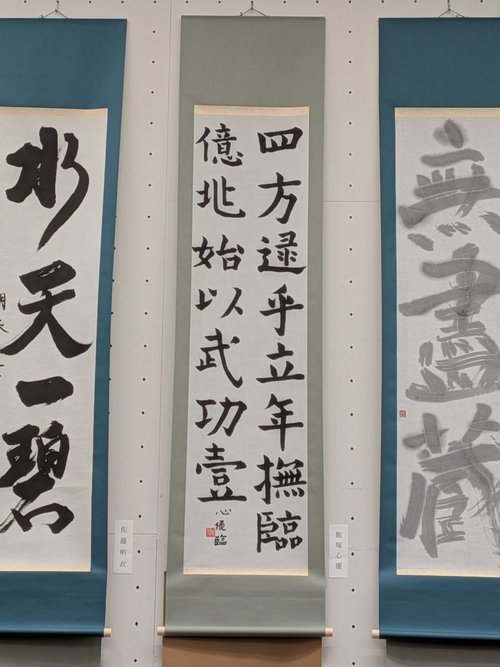 無盡蔵
飯塚心優
四方逮乎立年撫臨
億兆始以武功壹
心優臨
佐藤明衣
水天一碧